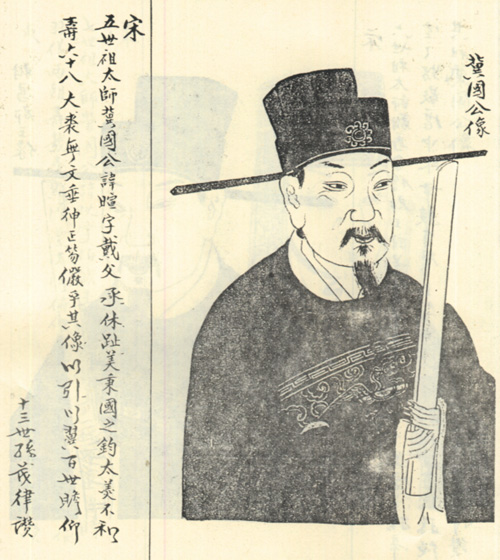 冀國公像
宋
五世祖太師冀國公諱暄字戴父承休趾美秉國之鈞太羮不和
壽六十八大裘無文垂紳正笏儼乎其像以引以翼百世瞻仰
十三世孫茂律讚